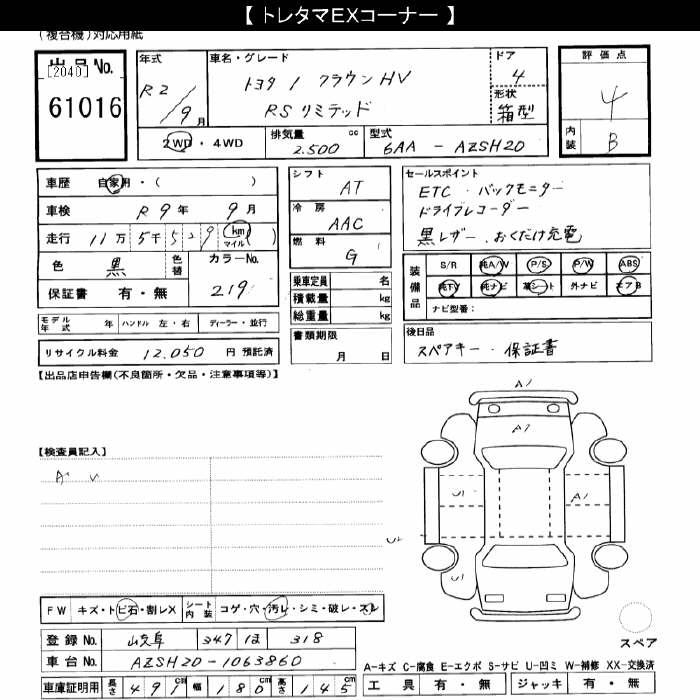 【 トレタマEXコーナー 】
(複合機)対応用紙
出品 No.
[2040]
61016
年式
R2/9月
車名・グレード
トヨタ / クラウンHV
RS リミテッド
ドア
4
形状
箱型
評価点
4
内装
B
2WD ・ 4WD
排気量
2.500 cc
型式
6AA - AZSH20
車歴 自家用・( )
車検 R9年 9月
走行 11万5千5 9 km マイル ( )
色 黒 色替 カラーNo.
219
保証書 有・無
モデル年式 年 ハンドル 左・右 ディーラー・並行
リサイクル料金 12.050 円 預託済
シフト
AT
冷房
AAC
燃料
G
乗車定員 名
積載量 kg
総重量 kg
書類期限
月 日
セールスポイント
ETC . バックモニター
ドライブレコーダー
黒レザー . おくだけ充電
装備品
S/R 純A/W P/S P/W ABS
純TV 純ナビ 革シート 外ナビ エアB
ナビ型番:
後日品
スペアキー . 保証書
【出品店申告欄(不良箇所・欠品・注意事項等)】
【検査員記入】
A U
A1
A1
U1
A1
U2
U1
スペア
FW キズ・トビ石・割レX シート内装 コゲ・穴・汚レ・シミ・破レ・スレ
登録 No. 岐阜 347 ほ 318
車台 No. AZSH20-1063860
車庫証明用 長さ 491cm 幅 180cm 高さ 145cm
A-キズ C-腐食 E-エクボ S-サビ U-凹ミ W-補修 XX-交換済
工具 有・無 ジャッキ 有・無